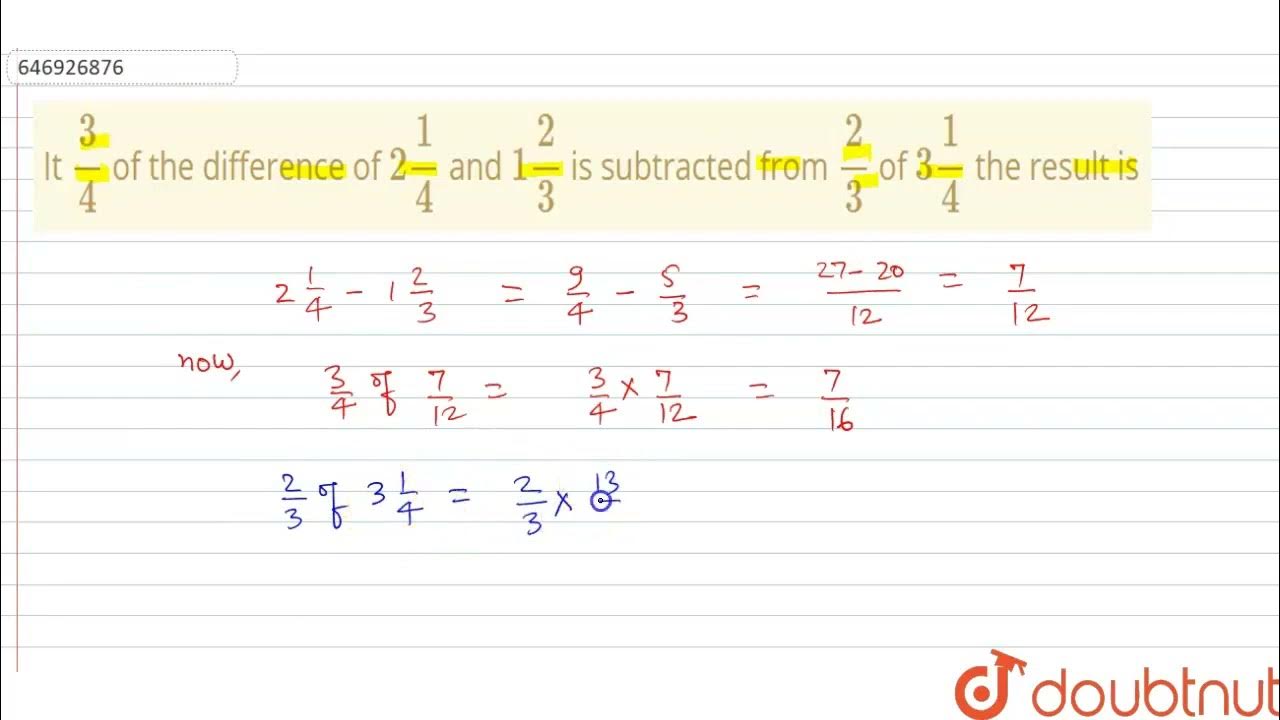 646926876
It 3/4 of the difference of 2 1/4 and 1 2/3 is subtracted from 2/3 of 3 1/4 the result is
2 1/4 - 1 2/3 = 9/4 - 5/3 = 27-20/12 = 7/12
now,
3/4 of 7/12 = 3/4 × 7/12 = 7/16
2/3 of 3 1/4 = 2/3 × 13
doubtnut